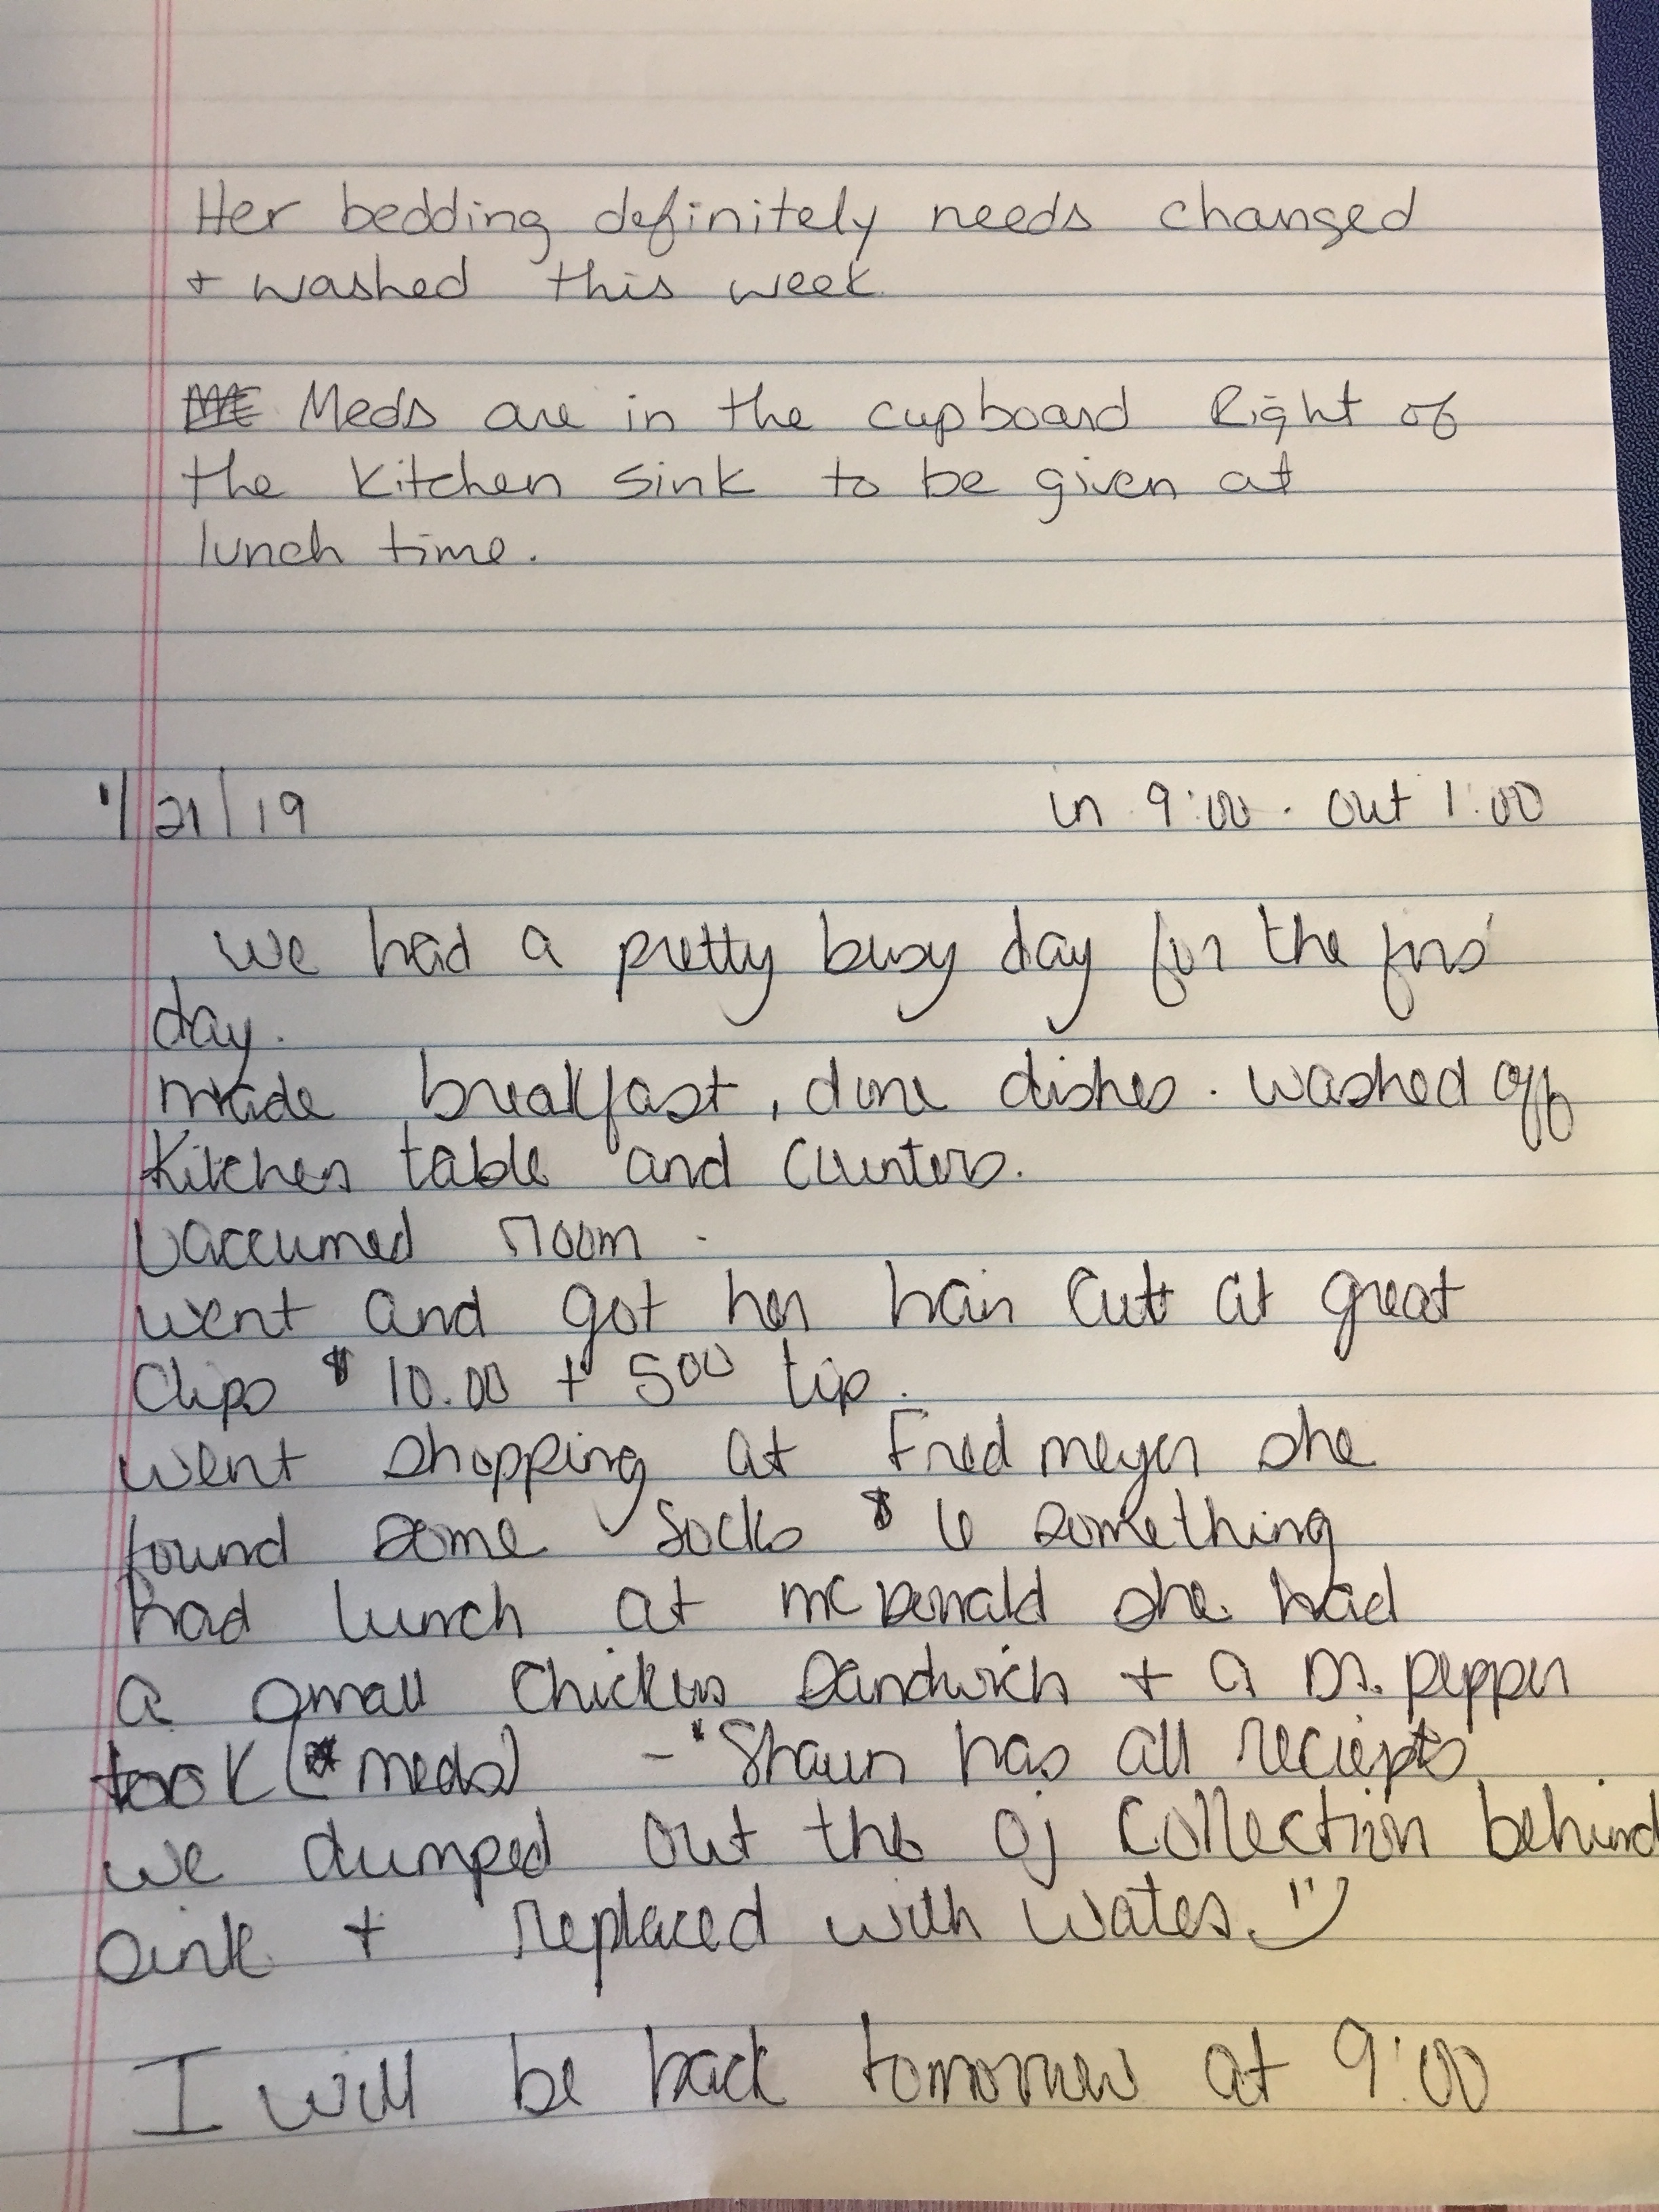 Her bedding definitely needs changed
+ washed this week.
Meds are in the cupboard Right of
the kitchen sink to be given at
lunch time.
1/21/19 in 9:00 - out 1:00
we had a pretty busy day for the firs
day.
made breakfast, done dishes. washed off
Kitchen table and counters.
Vaccumed room.
went and got her hair cut at great
Clips $10.00 + 5.00 tip.
went shopping at Fred meyer she
found some socks $6 something
had lunch at mcDonald she had
a small Chicken Sandwich + a Dr. pepper
took (* meds) - *Shaun has all reciepts
we dumped out the oj Collection behind
sink + replaced with water. :)
I will be back tomorrow at 9:00